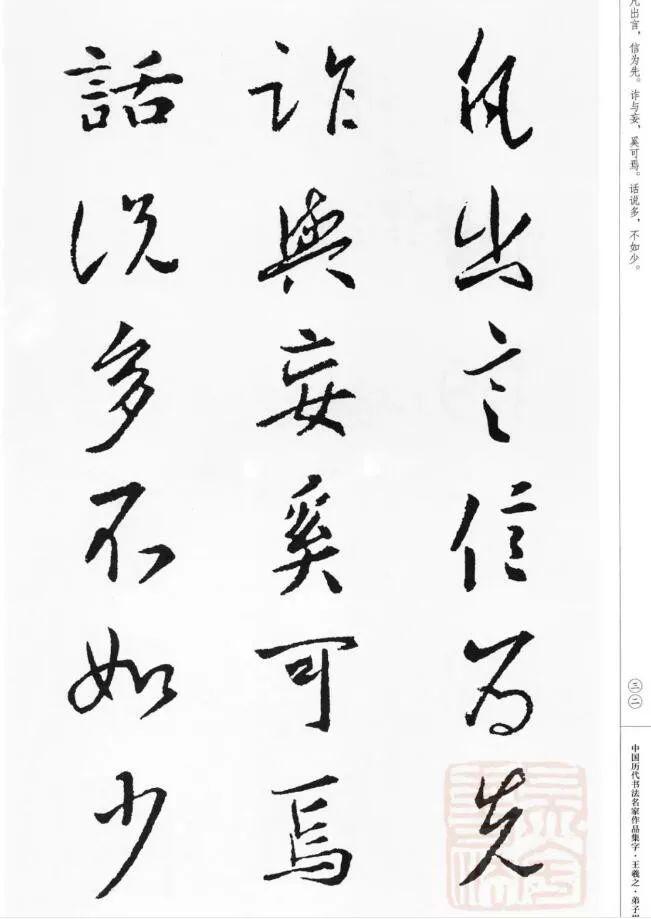 凡出言信为先
诈與妄奚可焉
話说多不如少
凡出言，信为先。诈与妄，奚可焉。话说多，不如少。
三二
中国历代书法名家作品集字·王羲之·弟子